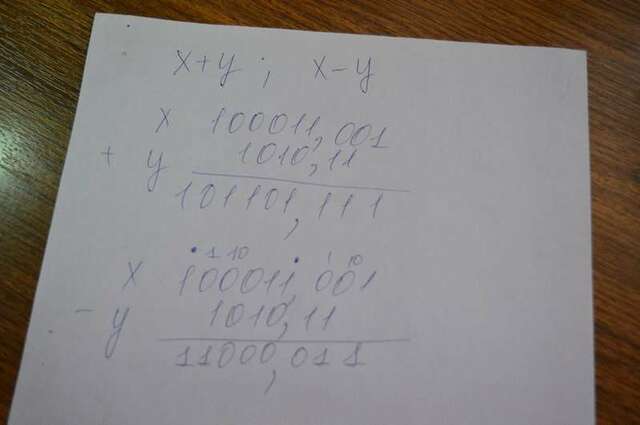 x+y ; x-y
x 100011,001
+ y 1010,11
101101,111
1 10 1 10
x 100011,001
- y 1010,11
11000,011